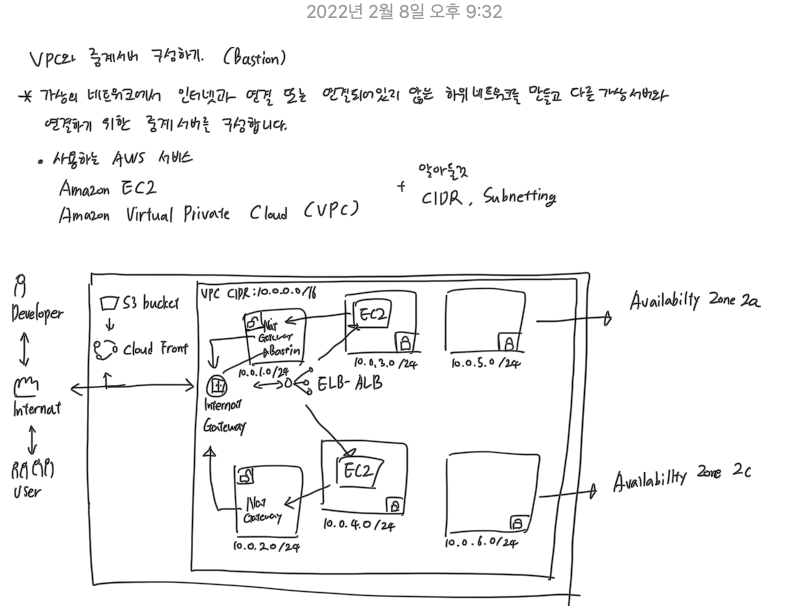 2022년 2월 8일 오후 9:32
VPC와 중계서버 구성하기. (Bastion)
* 가상의 네트워크에서 인터넷과 연결 또는 연결되어있지 않은 하위 네트워크를 만들고 다른 가상서버와
연결하기 위한 중계서버를 구성합니다.
• 사용하는 AWS 서비스
Amazon EC2
Amazon Virtual Private Cloud (VPC)
+ 알아둘것
CIDR, Subnetting
Developer
Internat
User
S3 bucket
Cloud Front
VPC CIDR:10.0.0.0/16
Nat
Gateway
Bastin
10.0.1.0/24
EC2
10.0.3.0/24
10.0.5.0/24
Availabilty Zone 2a
Internat
Gateway
ELB-ALB
Nat
Gateway
10.0.2.0/24
EC2
10.0.4.0/24
10.0.6.0/24
Availabillty Zone 2c